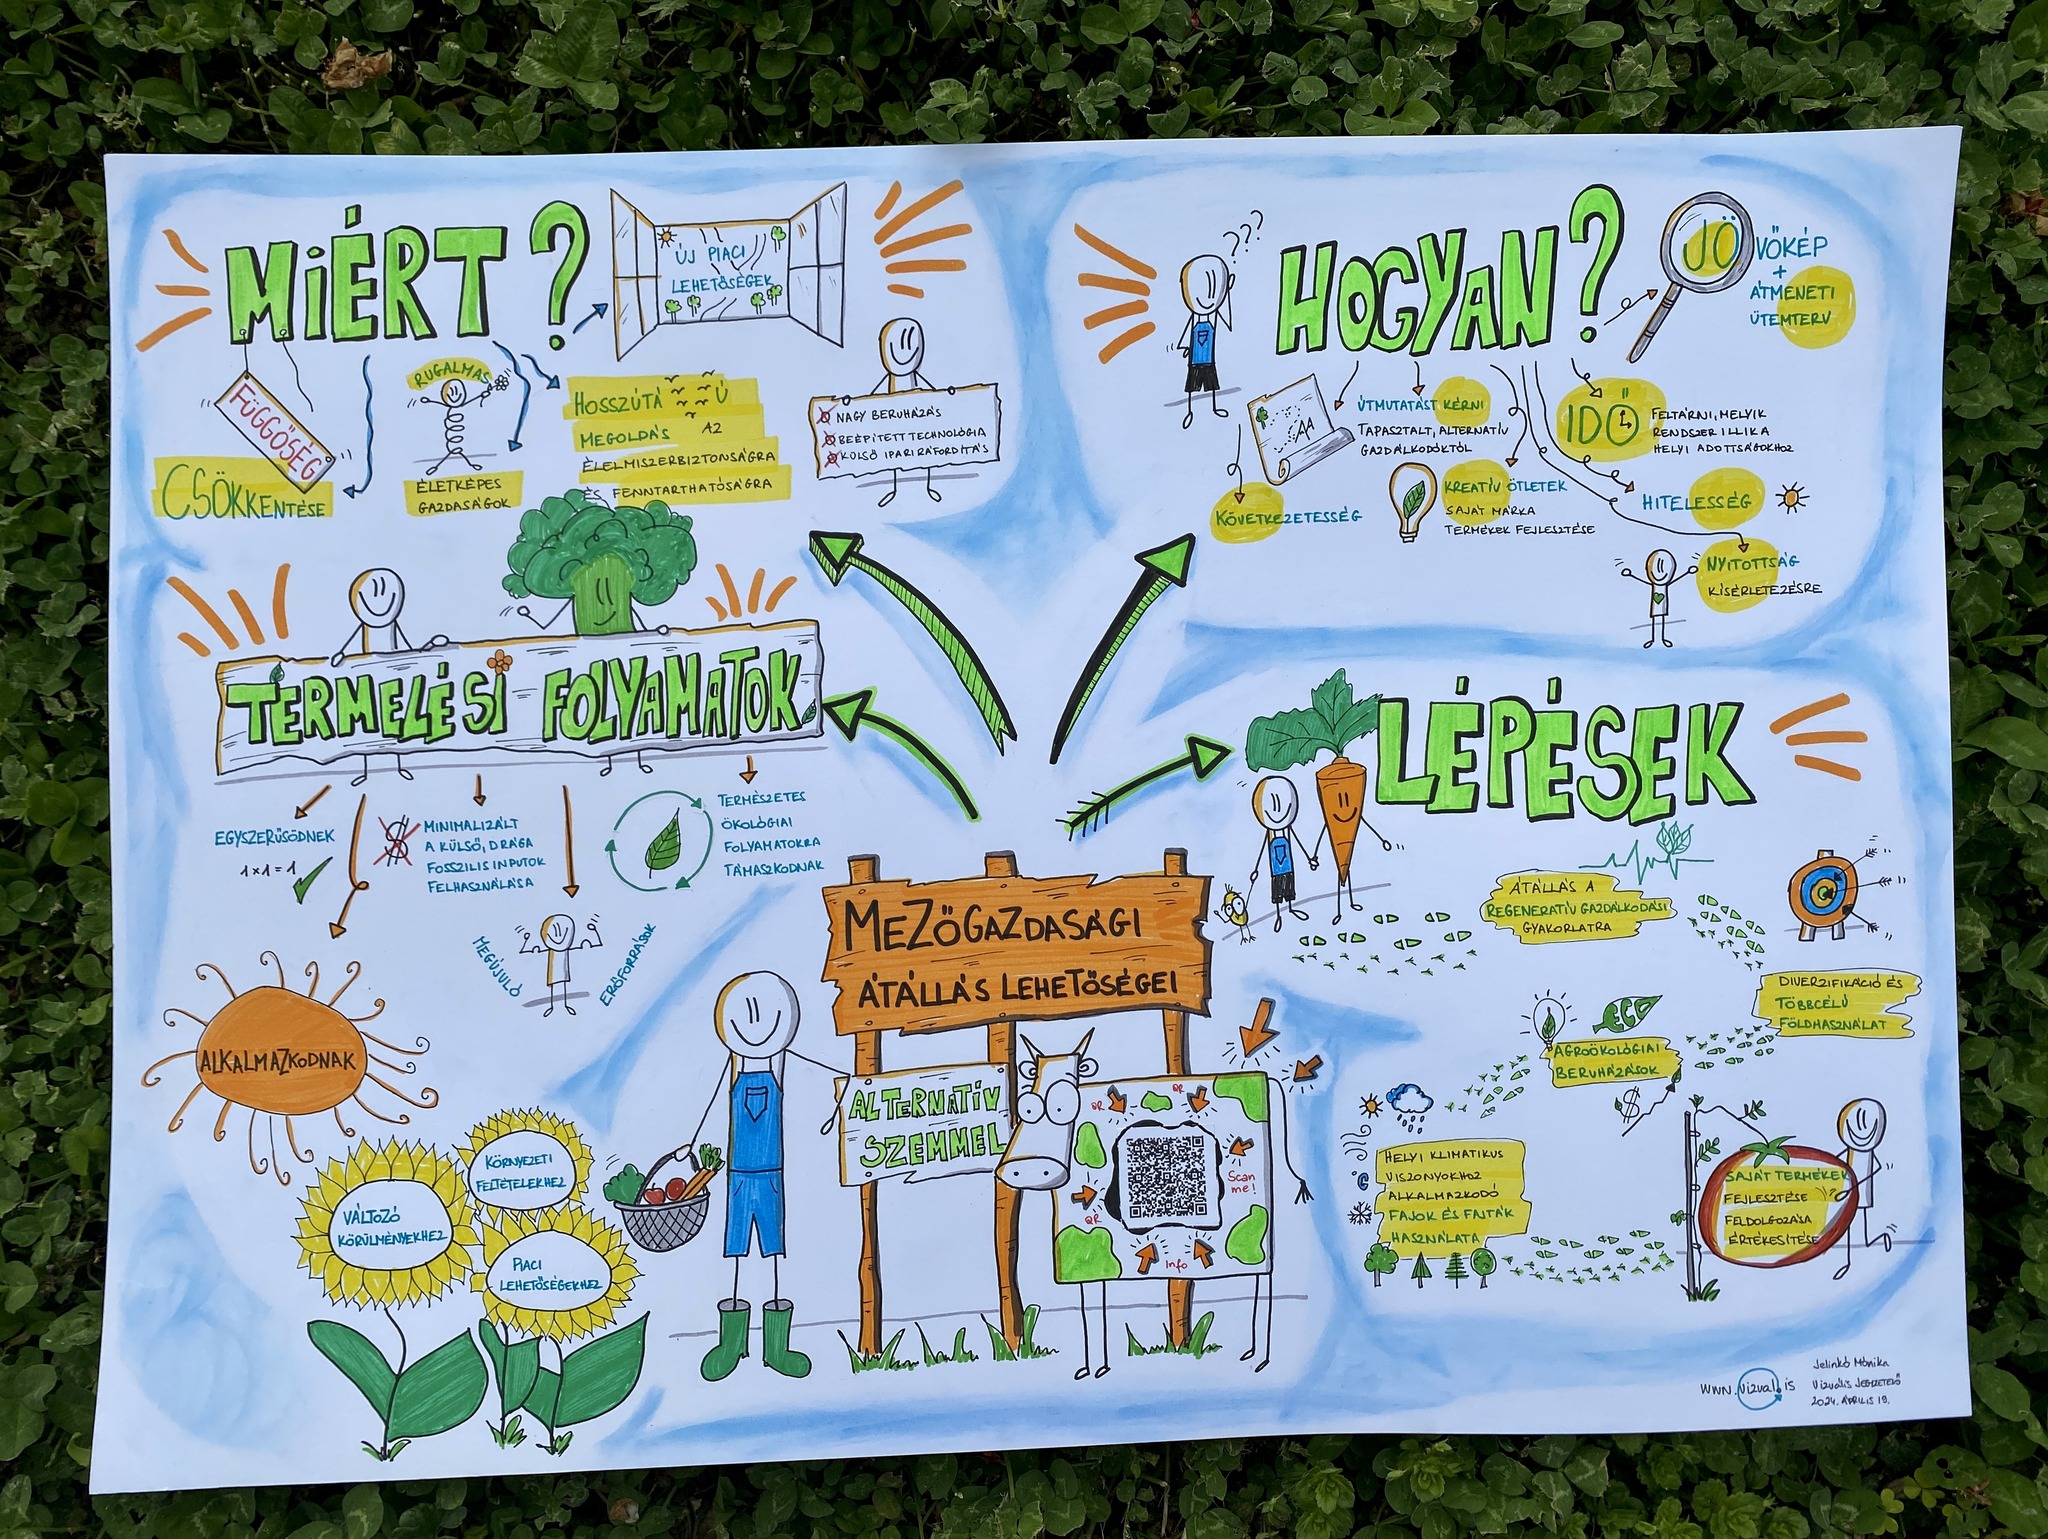 MIÉRT?
ÚJ PIACI
LEHETŐSÉGEK
FÜGGŐSÉG
CSÖKKENTÉSE
RUGALMAS
ÉLETKÉPES
GAZDASÁGOK
HOSSZÚTÁVÚ
MEGOLDÁS AZ
ÉLELMISZERBIZTONSÁGRA
ÉS FENNTARTHATÓSÁGRA
NAGY BERUHÁZÁS
BEÉPÍTETT TECHNOLÓGIA
KÜLSŐ IPARI RÁFORDÍTÁS
HOGYAN?
???
JÖVŐKÉP
+
ÁTMENETI
ÜTEMTERV
KÖVETKEZETESSÉG
ÚTMUTATÁST KÉRNI
TAPASZTALT, ALTERNATÍV
GAZDÁLKODÓKTÓL
KREATÍV ÖTLETEK
SAJÁT MÁRKA
TERMÉKEK FEJLESZTÉSE
IDŐ
FELTÁRNI, MELYIK
RENDSZER ILLIK A
HELYI ADOTTSÁGOKHOZ
HITELESSÉG
NYITOTTSÁG
KÍSÉRLETEZÉSRE
TERMELÉSI FOLYAMATOK
EGYSZERŰSÖDNEK
1x1=1
$
MINIMALIZÁLT
A KÜLSŐ, DRÁGA
FOSSZILIS INPUTOK
FELHASZNÁLÁSA
TERMÉSZETES
ÖKOLÓGIAI
FOLYAMATOKRA
TÁMASZKODNAK
MEGÚJULÓ
ERŐFORRÁSOK
ALKALMAZKODNAK
KÖRNYEZETI
FELTÉTELEKHEZ
VÁLTOZÓ
KÖRÜLMÉNYEKHEZ
PIACI
LEHETŐSÉGEKHEZ
MEZŐGAZDASÁGI
ÁTÁLLÁS LEHETŐSÉGEI
ALTERNATÍV
SZEMMEL
QR
QR
Scan
me!
QR
Info
LÉPÉSEK
ÁTÁLLÁS A
REGENERATÍV GAZDÁLKODÁSI
GYAKORLATRA
DIVERZIFIKÁCIÓ ÉS
TÖBBCÉLÚ
FÖLDHASZNÁLAT
ECO
AGROÖKOLÓGIAI
BERUHÁZÁSOK
$
HELYI KLIMATIKUS
VISZONYOKHOZ
ALKALMAZKODÓ
FAJOK ÉS FAJTÁK
HASZNÁLATA
SAJÁT TERMÉKEK
FEJLESZTÉSE
FELDOLGOZÁSA
ÉRTÉKESÍTÉSE
www.vizual.is
Jelinkó Mónika
VIZUÁLIS JEGYZETELŐ
2024. ÁPRILIS 19.